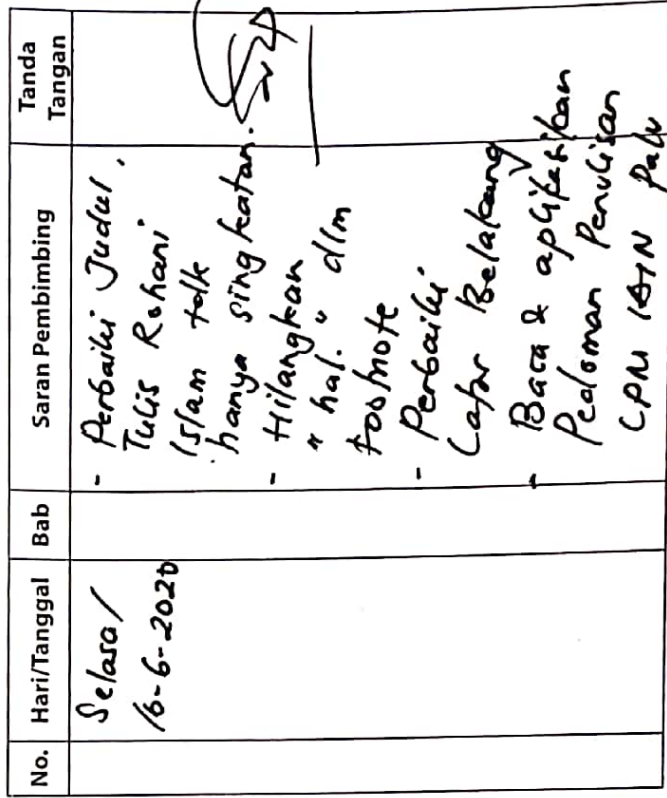 No. Hari/Tanggal Bab Saran Pembimbing Tanda Tangan
Selasa/
16-6-2020
- Perbaiki Judul,
Tulis Rohani
Islam tdk
hanya singkatan.
- Hilangkan
"hal." dlm
footnote
- Perbaiki
Latar Belakang
- Baca & aplikasikan
Pedoman Penulisan
IAIN Palu